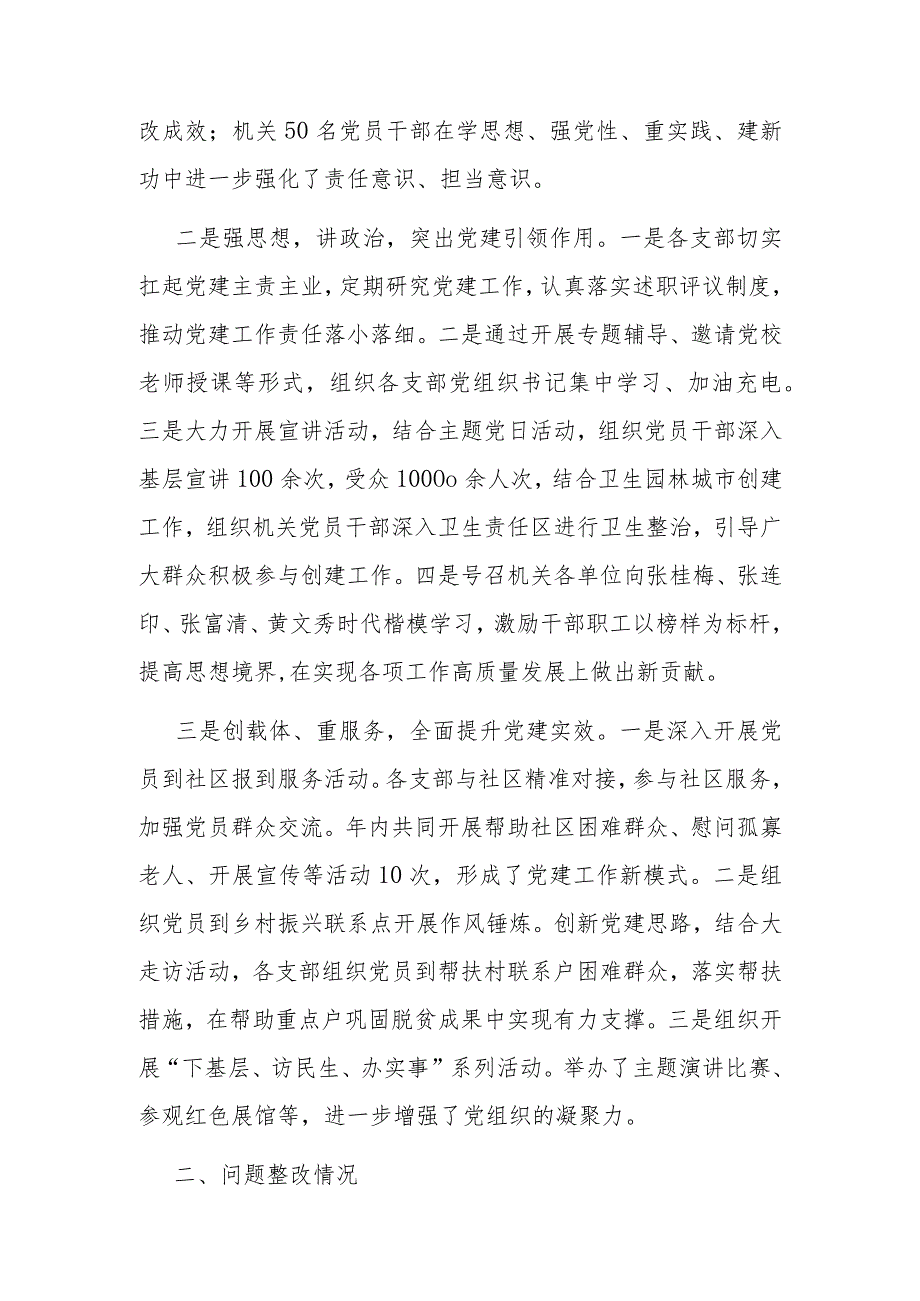 改成效；机关 50 名党员干部在学思想、强党性、重实践、建新
功中进一步强化了责任意识、担当意识。
二是强思想，讲政治，突出党建引领作用。一是各支部切实
扛起党建主责主业，定期研究党建工作，认真落实述职评议制度，
推动党建工作责任落小落细。二是通过开展专题辅导、邀请党校
老师授课等形式，组织各支部党组织书记集中学习、加油充电。
三是大力开展宣讲活动，结合主题党日活动，组织党员干部深入
基层宣讲 100 余次，受众 1000o 余人次，结合卫生园林城市创建
工作，组织机关党员干部深入卫生责任区进行卫生整治，引导广
大群众积极参与创建工作。四是号召机关各单位向张桂梅、张连
印、张富清、黄文秀时代楷模学习，激励干部职工以榜样为标杆，
提高思想境界,在实现各项工作高质量发展上做出新贡献。
三是创载体、重服务，全面提升党建实效。一是深入开展党
员到社区报到服务活动。各支部与社区精准对接，参与社区服务，
加强党员群众交流。年内共同开展帮助社区困难群众、慰问孤寡
老人、开展宣传等活动 10 次，形成了党建工作新模式。二是组
织党员到乡村振兴联系点开展作风锤炼。创新党建思路，结合大
走访活动，各支部组织党员到帮扶村联系户困难群众，落实帮扶
措施，在帮助重点户巩固脱贫成果中实现有力支撑。三是组织开
展“下基层、访民生、办实事”系列活动。举办了主题演讲比赛、
参观红色展馆等，进一步增强了党组织的凝聚力。
二、问题整改情况